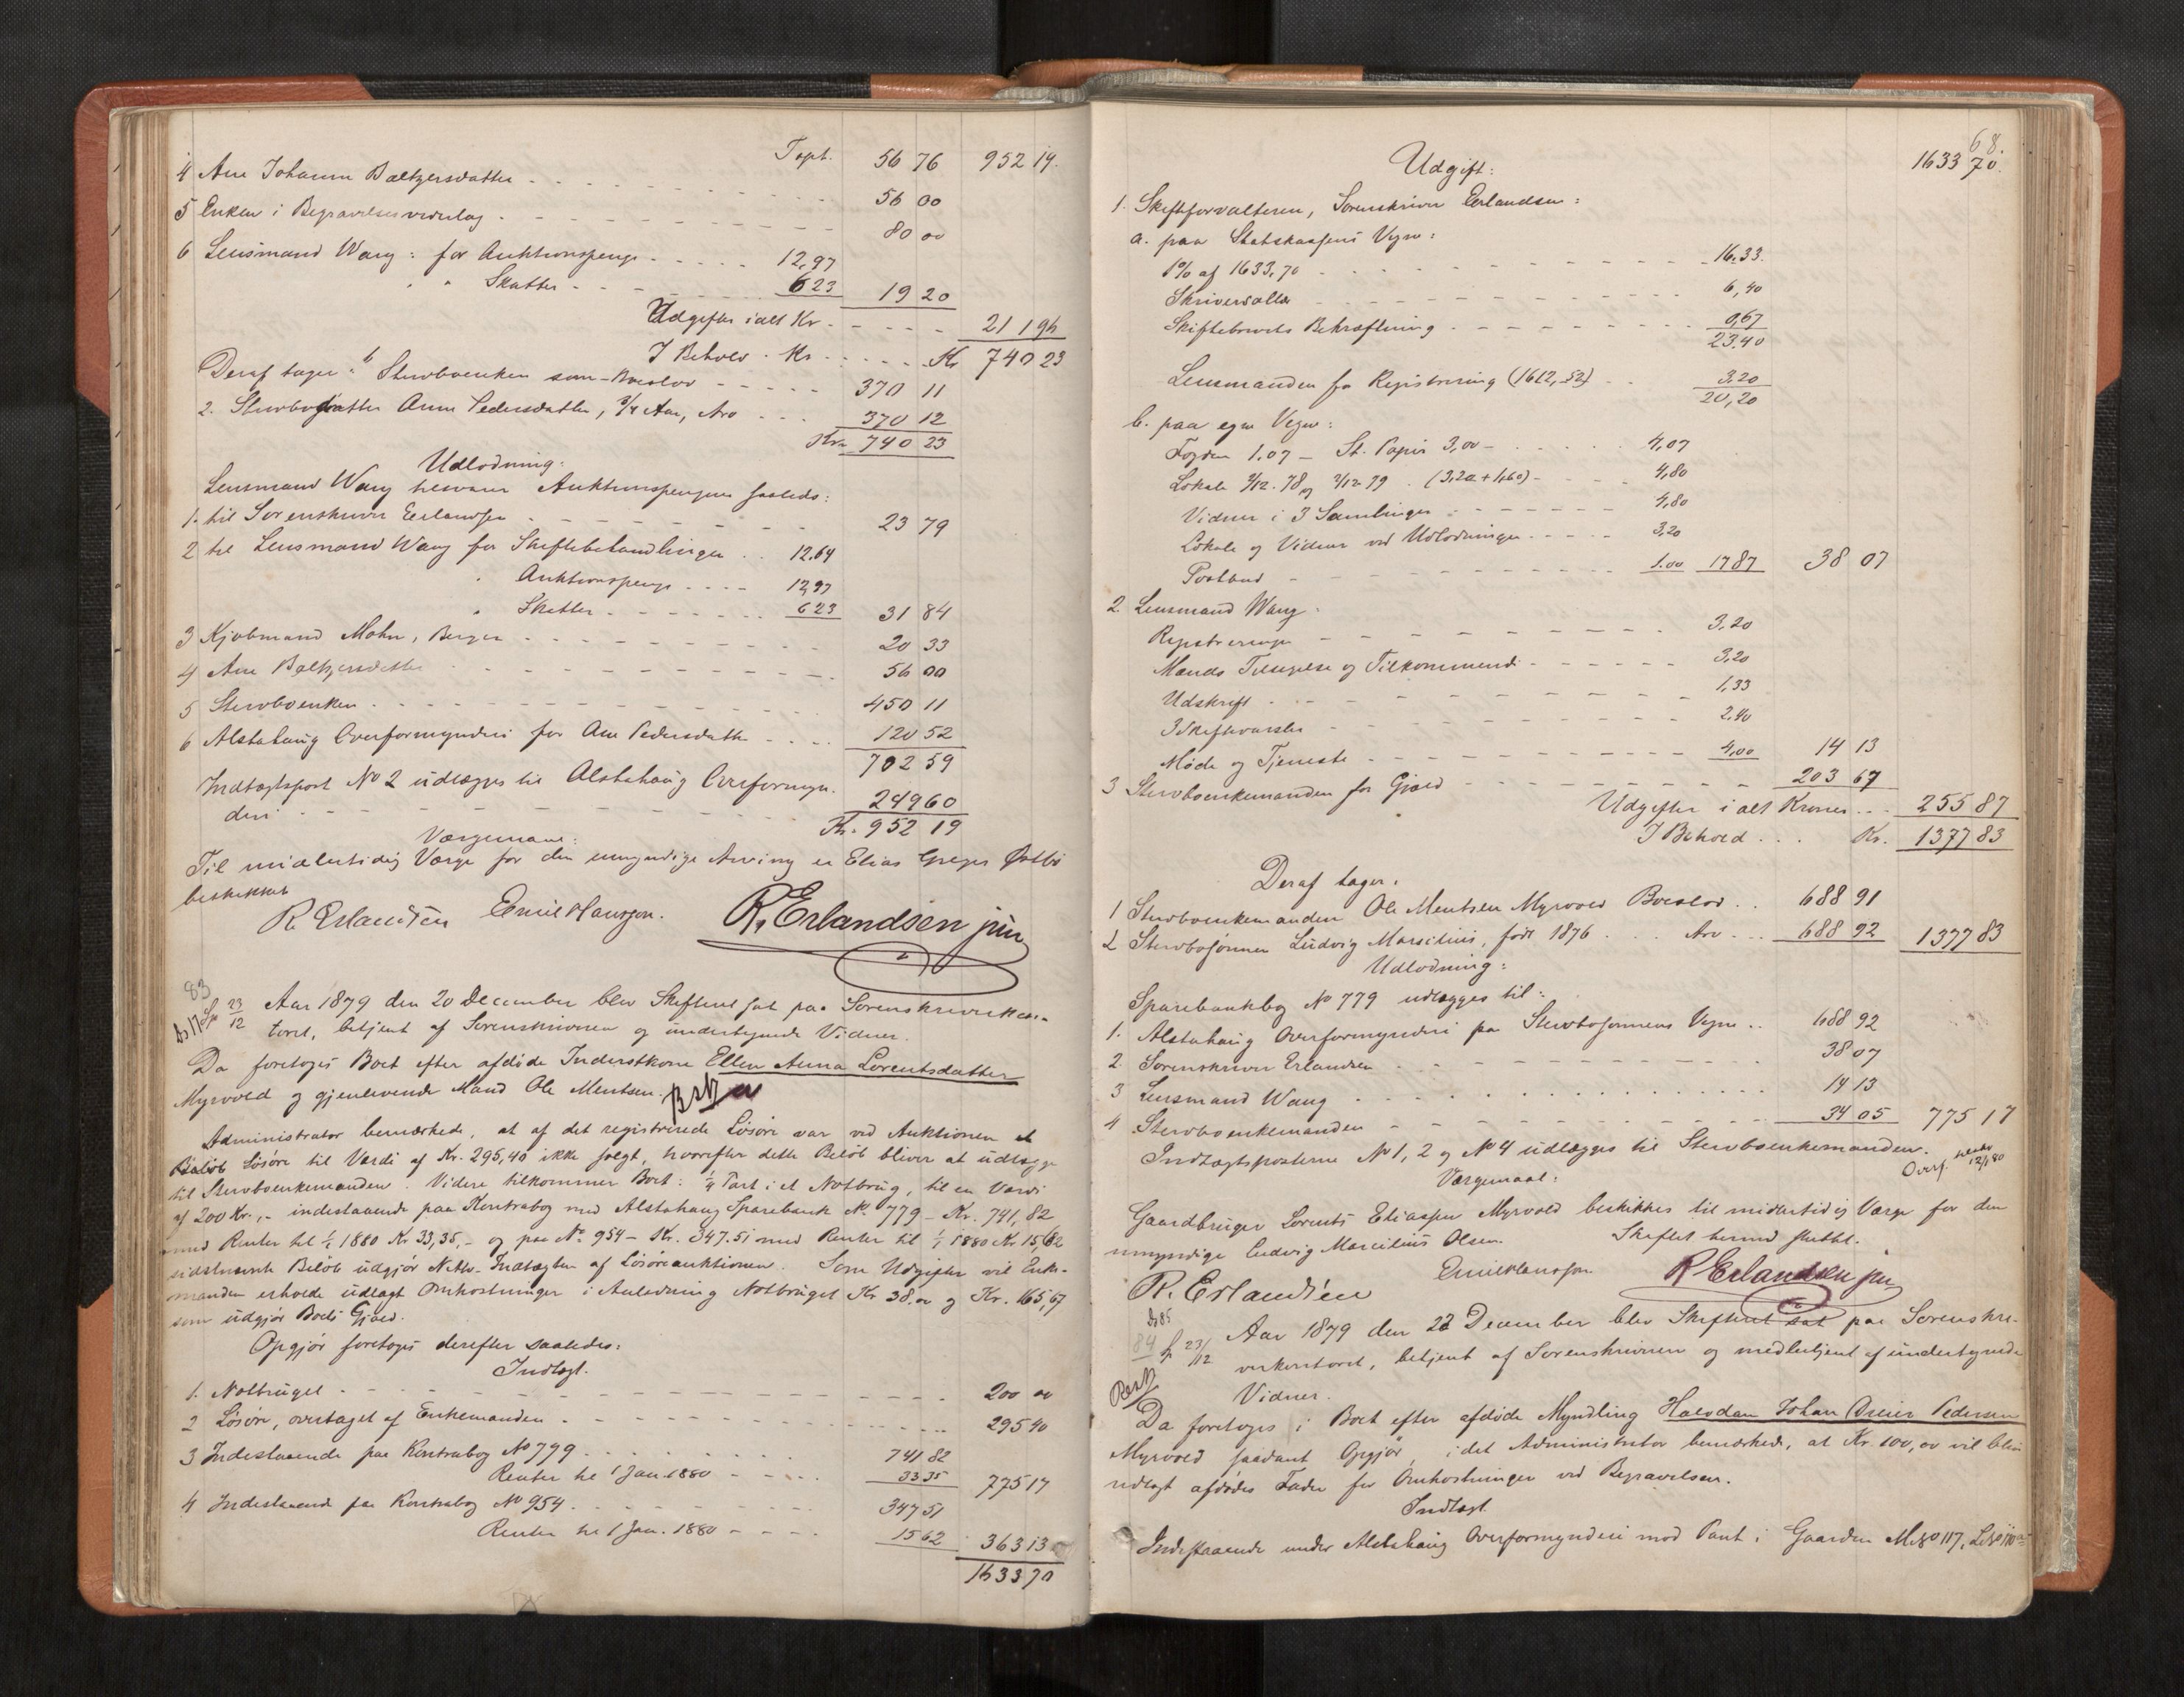 Tspt. 56 76 952 19.
4 Ane Johanna Baltzersdatter - - - 56 00
5 Enken i Begravelsesvederlag - - - 80 00
6 Lensmand Wang: for Auktionspenge - - - 12,97
" " Skatter - - - 6 23 19 20
Udgifter i alt Kr - - - 211 96
I Behold - Kr - - - Kr 740 23
Deraf tager: 1. Stervboenken som Boeslod - - - 370 11
2. Stervbodatter Anne Pedersdatter, 3/4 Aar, Arv - - - 370 12
Kr. 740 23
Udlodning:
Lensmand Wang tilsvarer Auktionspengene saaledes:
1. til Sorenskriver Erlandsen - - - 23 79
2 til Lensmand Wang for Skiftebehandlingen . . 12.64
" Auktionspenge - - - 12,97
" Skatter - - - 6 23 31 84
3 Kjøbmand Mohn, Bergen - - - 20 33
4 Ane Baltzersdatter - - - 56 00
5 Stervboenken - - - 450 11
6 Alstahaug Overformynderi for Ane Pedersdatter - - - 120 52
702 59
Indtægtspost No 2 udlægges til Alstahaug Overformyn-
deri - - - 249 60
Kr. 952 19
Værgemaal:
Til midlertidig Værge for den umyndige Arving er Elias Greger Østbø
beskikket
R. Erlandsen Emil Hansen. R. Erlandsen jun
83
23/12 Aar 1879 den 20 December blev Skifteret sat paa Sorenskriverkon-
toret, betjent af Sorenskriveren og undertegnede Vidner.
Da foretoges Boet efter afdøde Inderstkone Ellen Anna Lorentsdatter
Myrvold og gjenlevende Mand Ole Mentsen.
Administrator bemærkede, at af det registrerede Løsøre var ved Auktionen et
Beløb Løsøre til Værdi af Kr. 295,40 ikke solgt, hvorefter dette Beløb bliver at udlægge
til Stervboenkemanden. Videre tilkommer Boet: 1/4 Part i et Notbrug, til en Værdi
af 200 Kr., - indestaaende paa Kontrabog med Alstahaug Sparebank No. 779 - Kr. 741,82
med Renter til 1/1 1880 Kr 33,35, - og paa No 954 - Kr. 347.51 med Renter til 1/1 1880 Kr 15,62
sidstnævnte Beløb udgjør Netto-Indtægten af Løsøreauktionen. Som Udgifter vil Enke-
manden erholde udlagt Omkostninger i Anledning Notbruget Kr 38,00 og Kr. 165,67
som udgjør Boets Gjæld.
Opgjør foretoges derefter saaledes:
Indtægt.
1. Notbruget - - - 200 00
2 Løsøre, overtaget af Enkemanden - - - 295 40
3 Indestaaende paa Kontrabog No 779 . . . 741 82
Renter til 1 Jan. 1880 - - - 33 35 775 17
4 Indestaaende paa Kontrabog No 954 . . . 347 51
Renter til 1 Jan. 1880 - - - 15 62 363 13
1633 70
68.
1633 70.
Udgift:
1. Skifteforvalteren, Sorenskriver Erlandsen:
a. paa Statskassens Vegne:
1% af 1633,70 - - - 16.33.
Skriversalær - - - 6,40
Skiftebrevets Bekræftning - - - 0,67
23.40
Lensmanden for Registrering (1612,52) . . 3,20
20,20
b. paa egne Vegne:
Fogden 1.07 - St. Papir 3,00 - - - 4,07
Lokale 3/12. 78 og 3/12 79 . (3,20 + 1,60) - - - 4,80
Vidner i 3 Samlinger - - - 4,80
Lokale og Vidner ved Udlodningen - - - 3,20
Postbud - - - 1.00 17 87 38 07
2. Lensmand Wang:
Registreringen - - - 3,20
Mands Tilsigelse og Tilkommende - - - 3,20
Udskrift - - - 1,33
3 Skiftevarsler - - - 2.40
Møde og Tjeneste - - - 4,00 14 13
3 Stervboenkemanden for Gjæld - - - 203 67
Udgifter i alt Kroner . . . 255 87
I Behold . . . Kr. 1377 83
Deraf tager:
1 Stervboenkemanden Ole Mentsen Myrvold Boeslod . . 688 91
2 Stervbosønnen Ludvig Marsilius, født 1876 . . Arv . . . 688 92 1377 83
Udlodning:
Sparebankbog No 779 udlægges til:
1. Alstahaug Overformynderi paa Stervbosønnens Vegne . . 688 92
2. Sorenskriver Erlandsen - - - 38 07
3 Lensmand Wang - - - 14 13
4 Stervboenkemanden - - - 34 05 775 17
Indtægtsposterne No 1, 2 og No 4 udlægges til Stervboenkemanden.
Overf. 12/1 80
Værgemaal:
Gaardbruger Lorents Eliassen Myrvold beskikkes til midlertidig Værge for den
umyndige Ludvig Marcilius Olsen. Skiftet hermed sluttet.
R. Erlandsen Emil Hansen R Erlandsen jun
84 23/12 Aar 1879 den 22 December blev Skifteret sat paa Sorenskri-
verkontoret, betjent af Sorenskriveren og medbetjent af undertegnede
Vidner.
Da foretoges i Boet efter afdøde Myndling Halvdan Johan Pedersen
Myrvold saadant Opgjør, idet Administrator bemærkede, at Kr. 100,00 vil blive
udlagt afdødes Fader for Omkostninger ved Begravelsen.
Indtægt.
Indestaaende under Alstahaug Overformynderi mod Pant i Gaarden M. No 117, L. No